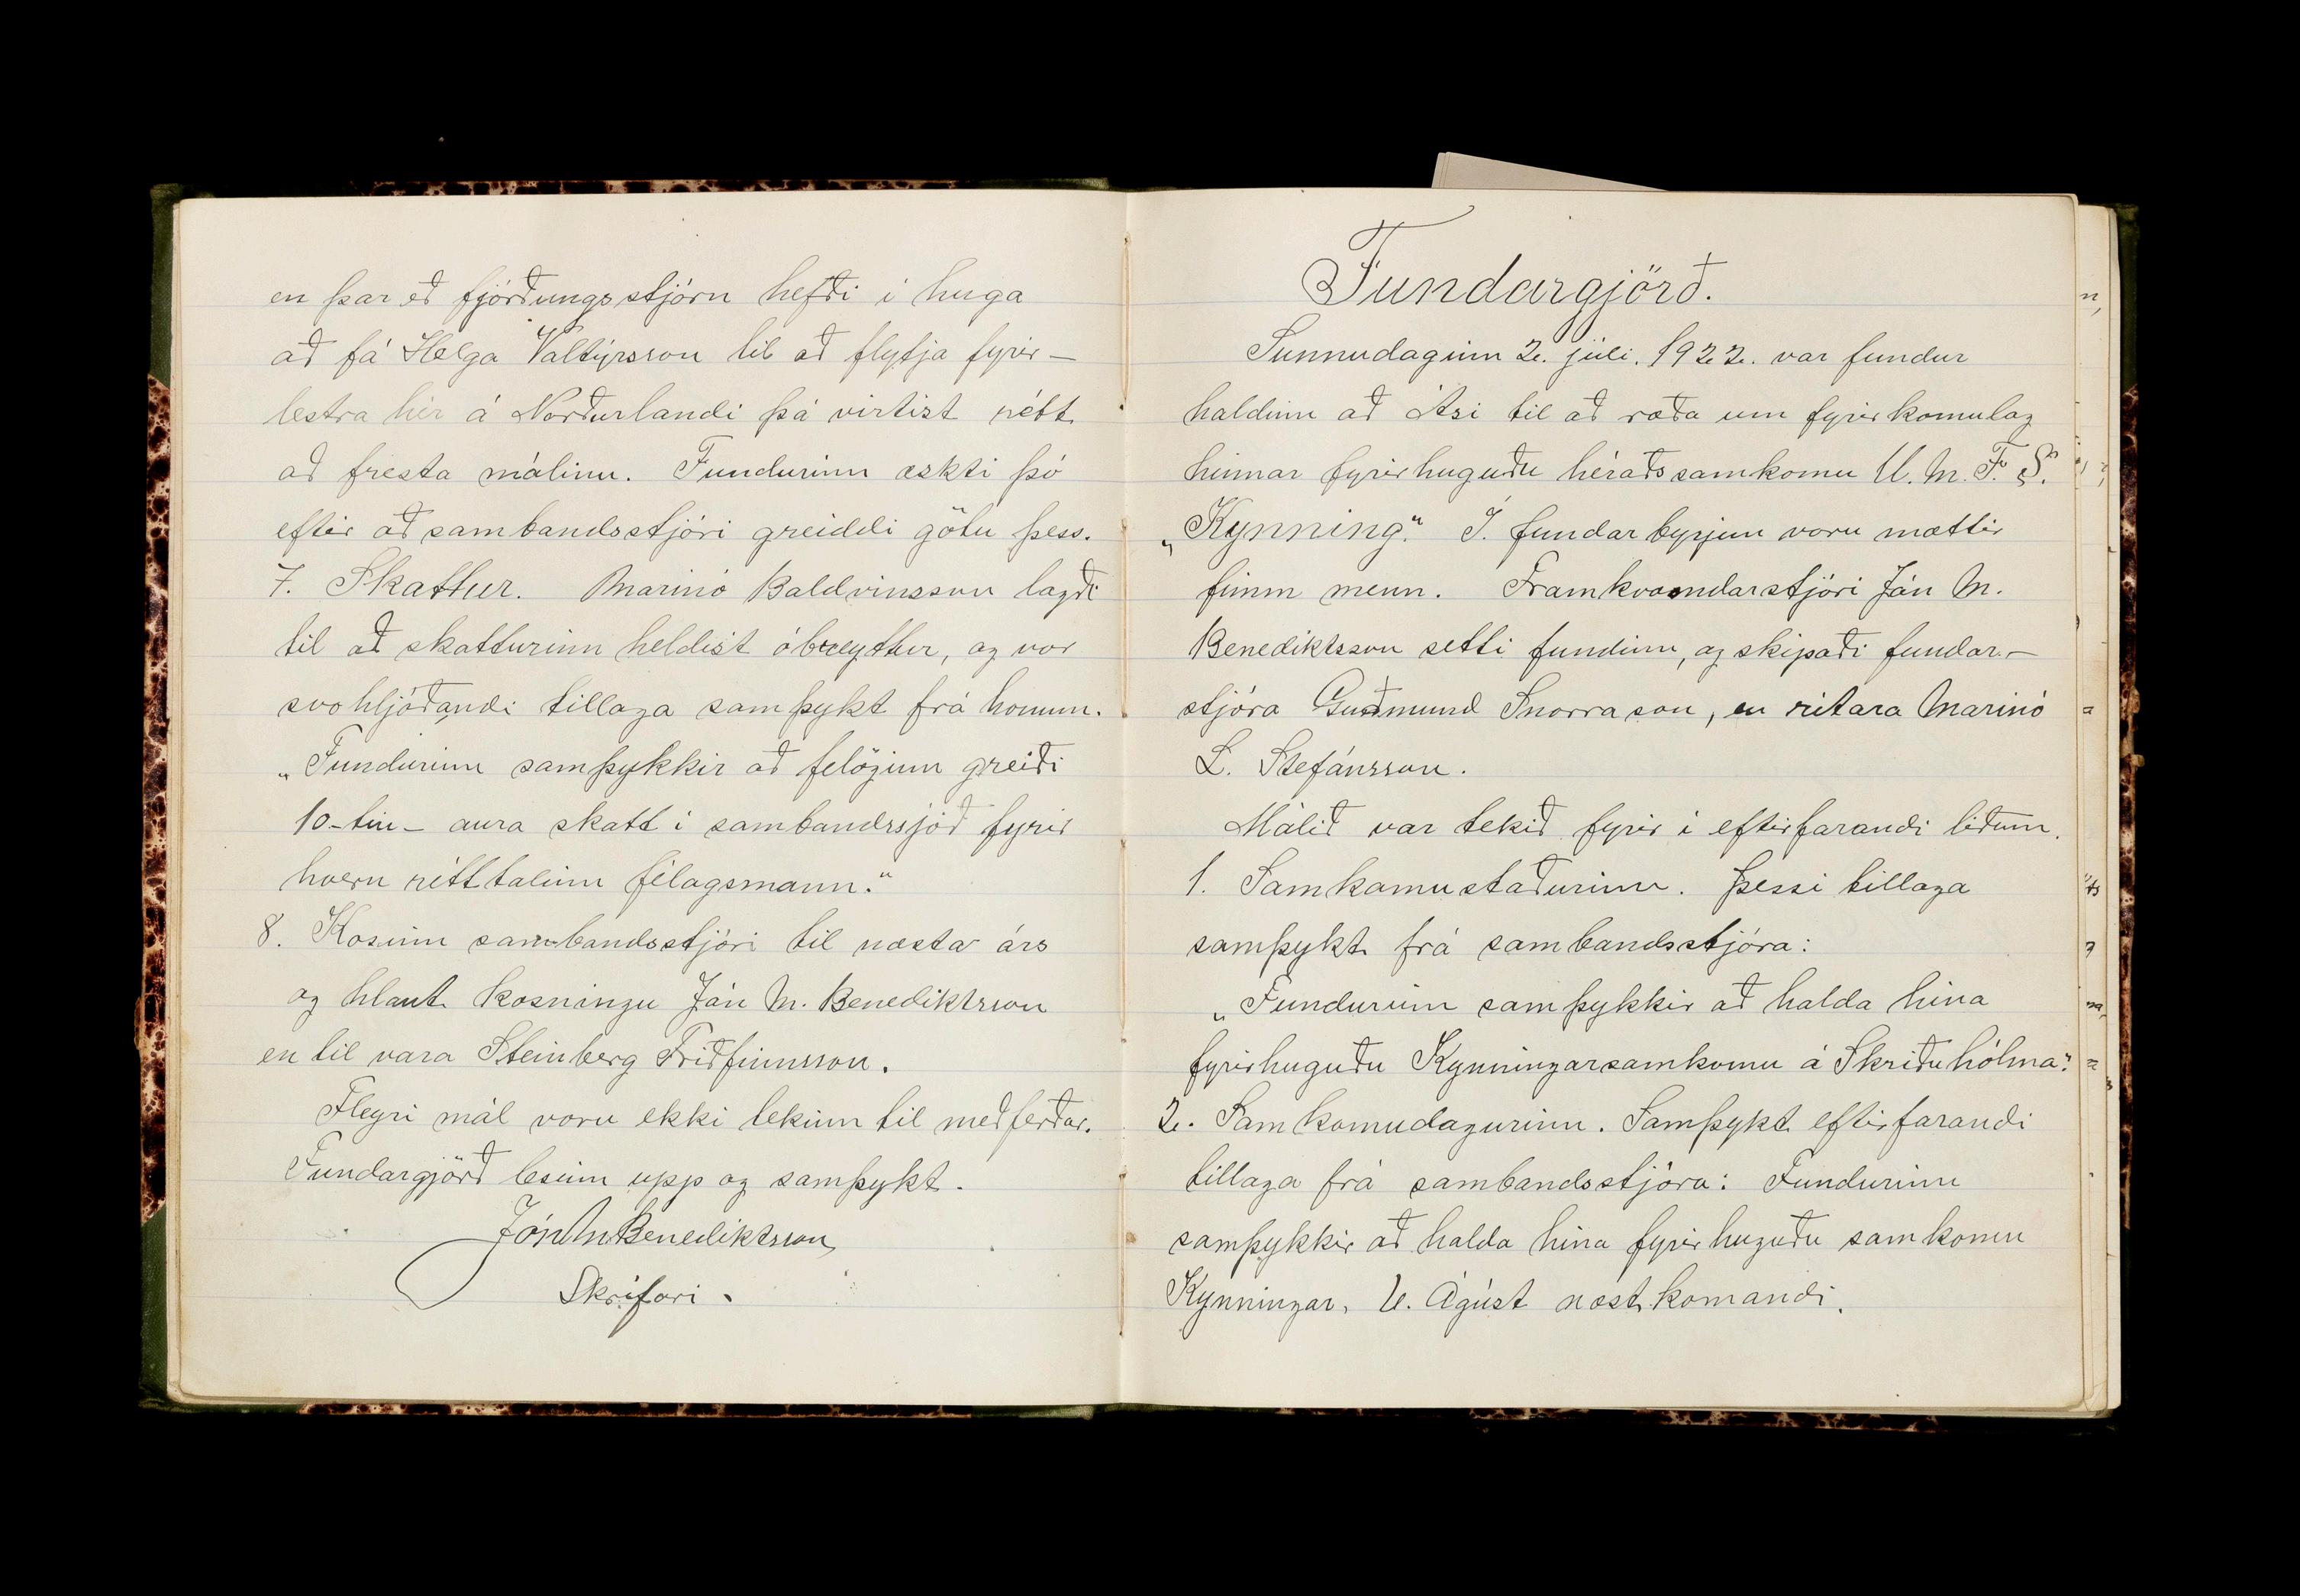 en þar eð fjórðungsstjórn hefði í huga
að fá Helga Valtýrsson til að flytja fyrir-
lestra hér á Norðurlandi þá virtist rétt
að fresta málinu. Fundurinn æskti þó
eftir að sambandsstjóri greiddi götu þess.
7. Skattur. Marinó Baldvinsson lagði
til að skatturinn heldist óbreyttur, og var
svohljóðandi tillaga samþykt frá honum.
„Fundurinn samþykkir að felöginn greiði
10-tíu- aura skatt í sambandssjóð fyrir
hvern rétttalinn félagsmann."
8. Kosinn sambandsstjóri til næsta árs
og hlaut kosningu Jón M. Benediktsson
en til vara Steinberg Friðfinnsson.
Fleyri mál voru ekki tekinn til meðferðar.
Fundargjörð lesinn upp og samþykt.
Jón M Benediktsson
Skrifari.
Fundargjörð.
Sunnudaginn 2. júlí. 1922. var fundur
haldinn að Ási til að ræða um fyrirkomulag
hinnar fyrirhuguðu héraðssamkomu U. M. F. S.
„Kynning." Í. fundarbyrjun voru mættir
fimm menn. Framkvæmdarstjóri Jón M.
Benediktsson setti fundinn, og skipaði fundar-
stjóra Guðmund Snorrason, en ritara Marinó
L. Stefánsson.
Málið var tekið fyrir í eftirfarandi liðum.
1. Samkomustaðurinn. Þessi tillaga
samþykt frá sambandsstjóra:
„Fundurinn samþykkir að halda hina
fyrirhuguðu Kynningarsamkomu á Skriðuhólma."
2. Samkomudagurinn. Samþykt eftirfarandi
tillaga frá sambandsstjóra: Fundurinn
samþykkir að halda hina fyrirhuguðu samkomu
Kynningar, Ágúst næstkomandi.